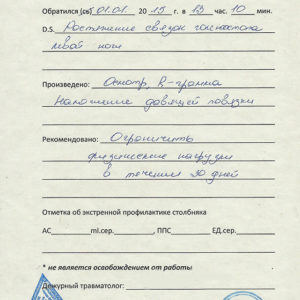 Обратился (ся) 01.01 2015 г. в 13 час. 10 мин.
D.S. Растяжение связок голеностопа
левой ноги
Произведено: Осмотр, R-грамма
Наложение давящей повязки
Рекомендовано: Ограничить
физические нагрузки
в течении 30 дней
Отметка об экстренной профилактике столбняка
АС ml.сер. , ППС ЕД.сер.
* не является освобождением от работы
Дежурный травматолог: